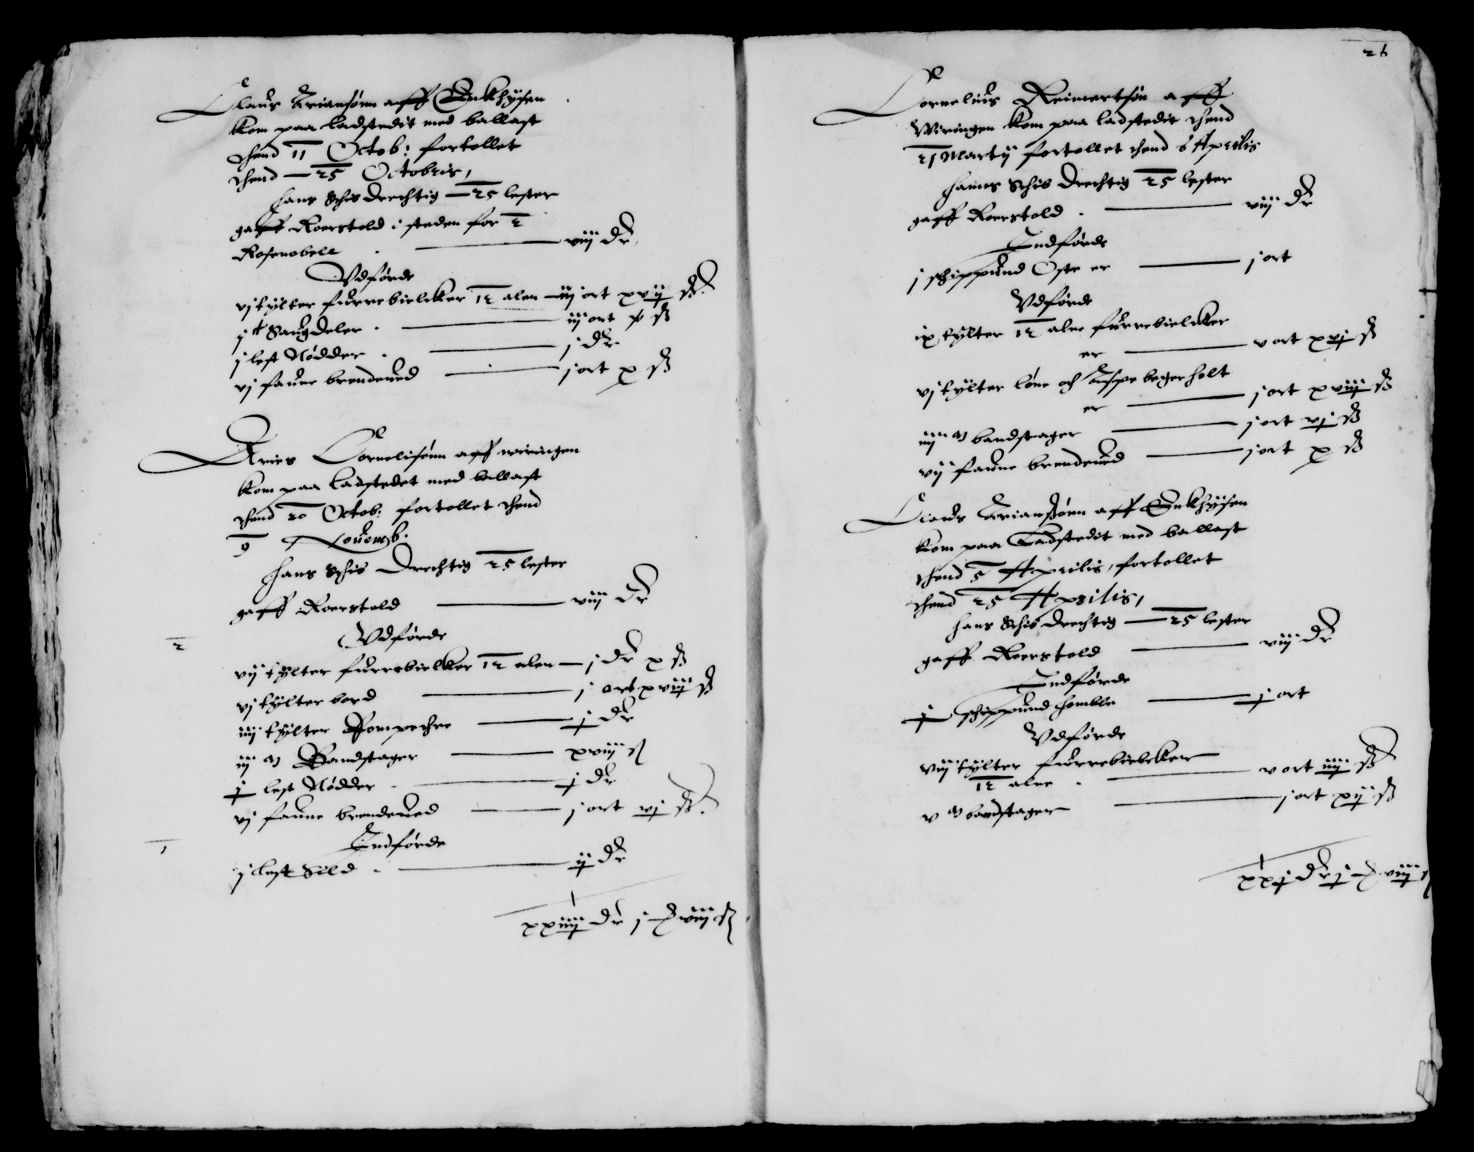 Claus Ariansønn aff Enkhÿsen
kom paa ladstedit med ballast
thend 11 Octob: fortollet
thend — 25 Octobris,
hans Schib drechtig — 25 lester
gaff Roertold i steden for 2
Rosenobele . — viij dr.
Vdførde
vj tÿlter furrebielcker 12 alen — iij ort xvij ß.
j Saugdeler . — iij ort x ß
j lest Nødder . — j dr
vj faune brendeued — j ort x ß
Aries Cornelisønn aff wiringen
kom paa ladstedet med ballast
thend 20 Octob: fortollet thend
9 Nouemb.
hans Schib drechtig 25 lester
gaff Roertold — viij dr
Vdførde
2
vij tÿlter furrebielcker 12 alen — j dr x ß
vj tÿlter bord — j ort xviij ß
iiij tÿlter — j dr
iij m Bandstager — xviij ß
j lest Nødder . — j dr
vj faune brendeued — j ort vj ß.
Indførde
1
j lest Sild . — ij dr
xxiiij dr j ort viij ß
26
Cornelius Reimertsøn aff
Wiringen kom paa ladstedit thend
21 Martij fortollet thend 6 Aprilis
hanns Schib drechtig 25 lester
gaff Roertold . — viij dr
Indførde
j schippund Oste er — j ort
Vdførde
ix tÿlter 12 alne furrebielcker
er — v ort xvj ß
vj tÿlter løne och Aspe begerholt
er — j ort xviij ß
iiij m bandstager — j ort vj ß
vij faune brendeued — j ort x ß
Claus Ariansønn aff Enkhÿsen
kom paa Ladstedit med ballast
thend 5 Aprilis, fortollet
thend 25 Aprilis,
hans Schib drechtig — 25 lester
gaff Roertold — viij dr
Indførde
j schippund homble — j ort
Vdførde
viij tÿlter furrebielcker
12 alne . — v ort iiij ß
v m bandstager — j ort xij ß
xxj dr j ort viij ß